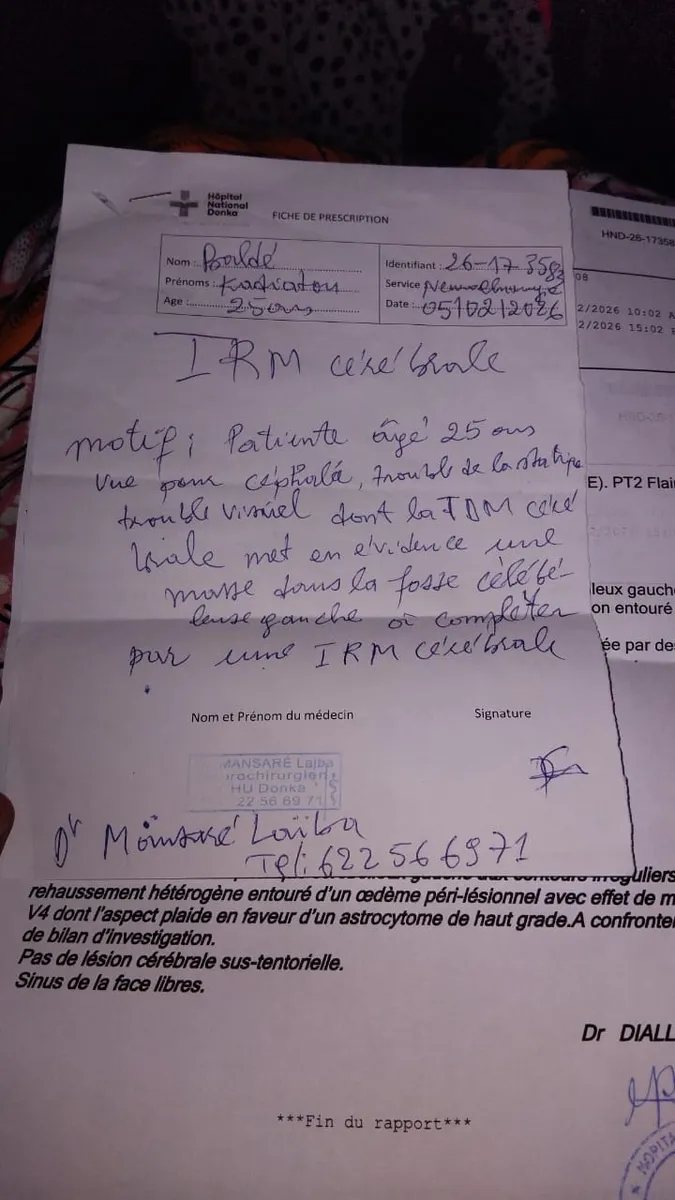 Hôpital
National
Donka
FICHE DE PRESCRIPTION
Nom : Baldé
Prénoms : Kadiatou
Age : 25 ans
Identifiant : 26-17 3583
Service
Date : 05/02/2026
IRM cérébrale
motif : Patiente âgé 25 ans
vue pour céphalé, trouble de la
trouble visuel dont la TDM céré
brale met en évidence une
masse dans la fosse célébé-
leuse gauche à compléter
par une IRM cérébrale
Nom et Prénom du médecin
Signature
MANSARÉ Lajba
rochirurgien
HU Donka
22 56 69 71
Dr Mansaré Laïba
Tel: 622566971
HND-26-17358
08
2/2026 10:02 A
2/2026 15:02
E). PT2 Flai
leux gauch
on entouré
ée par de
rehaussement hétérogène entouré d'un œdème péri-lésionnel avec effet de m
V4 dont l'aspect plaide en faveur d'un astrocytome de haut grade.A confronte
de bilan d'investigation.
Pas de lésion cérébrale sus-tentorielle.
Sinus de la face libres.
Dr DIALL
***Fin du rapport***
HOPITA